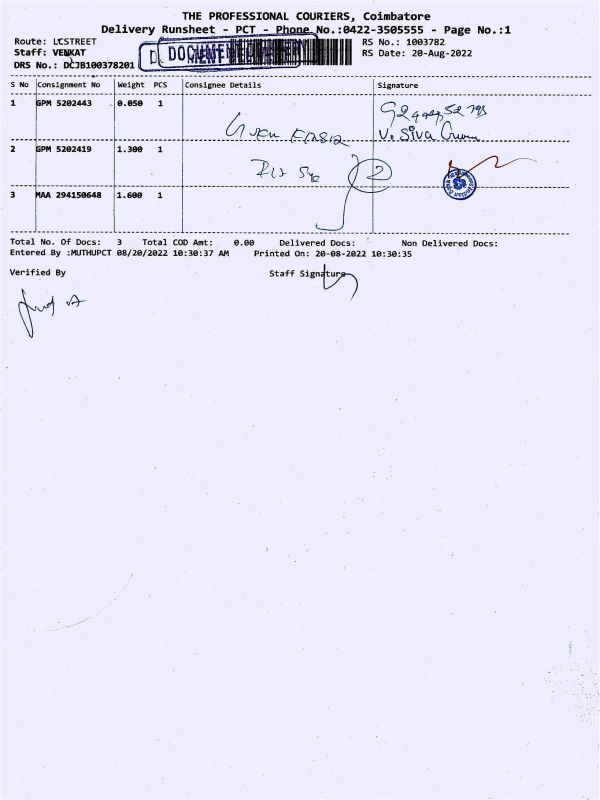 THE PROFESSIONAL COURIERS, Coimbatore
Delivery Runsheet - PCT - Phone No.:0422-3505555 - Page No.:1
Route: LCSTREET RS No.: 1003782
Staff: VENKAT RS Date: 20-Aug-2022
DRS No.: DCJB100378201
S No Consignment No Weight PCS Consignee Details Signature
1 GPM 5202443 0.050 1
V. Siva
2 GPM 5202419 1.300 1
2
3 MAA 294150648 1.600 1
Total No. Of Docs: 3 Total COD Amt: 0.00 Delivered Docs: Non Delivered Docs:
Entered By :MUTHUPCT 08/20/2022 10:30:37 AM Printed On: 20-08-2022 10:30:35
Verified By Staff Signature